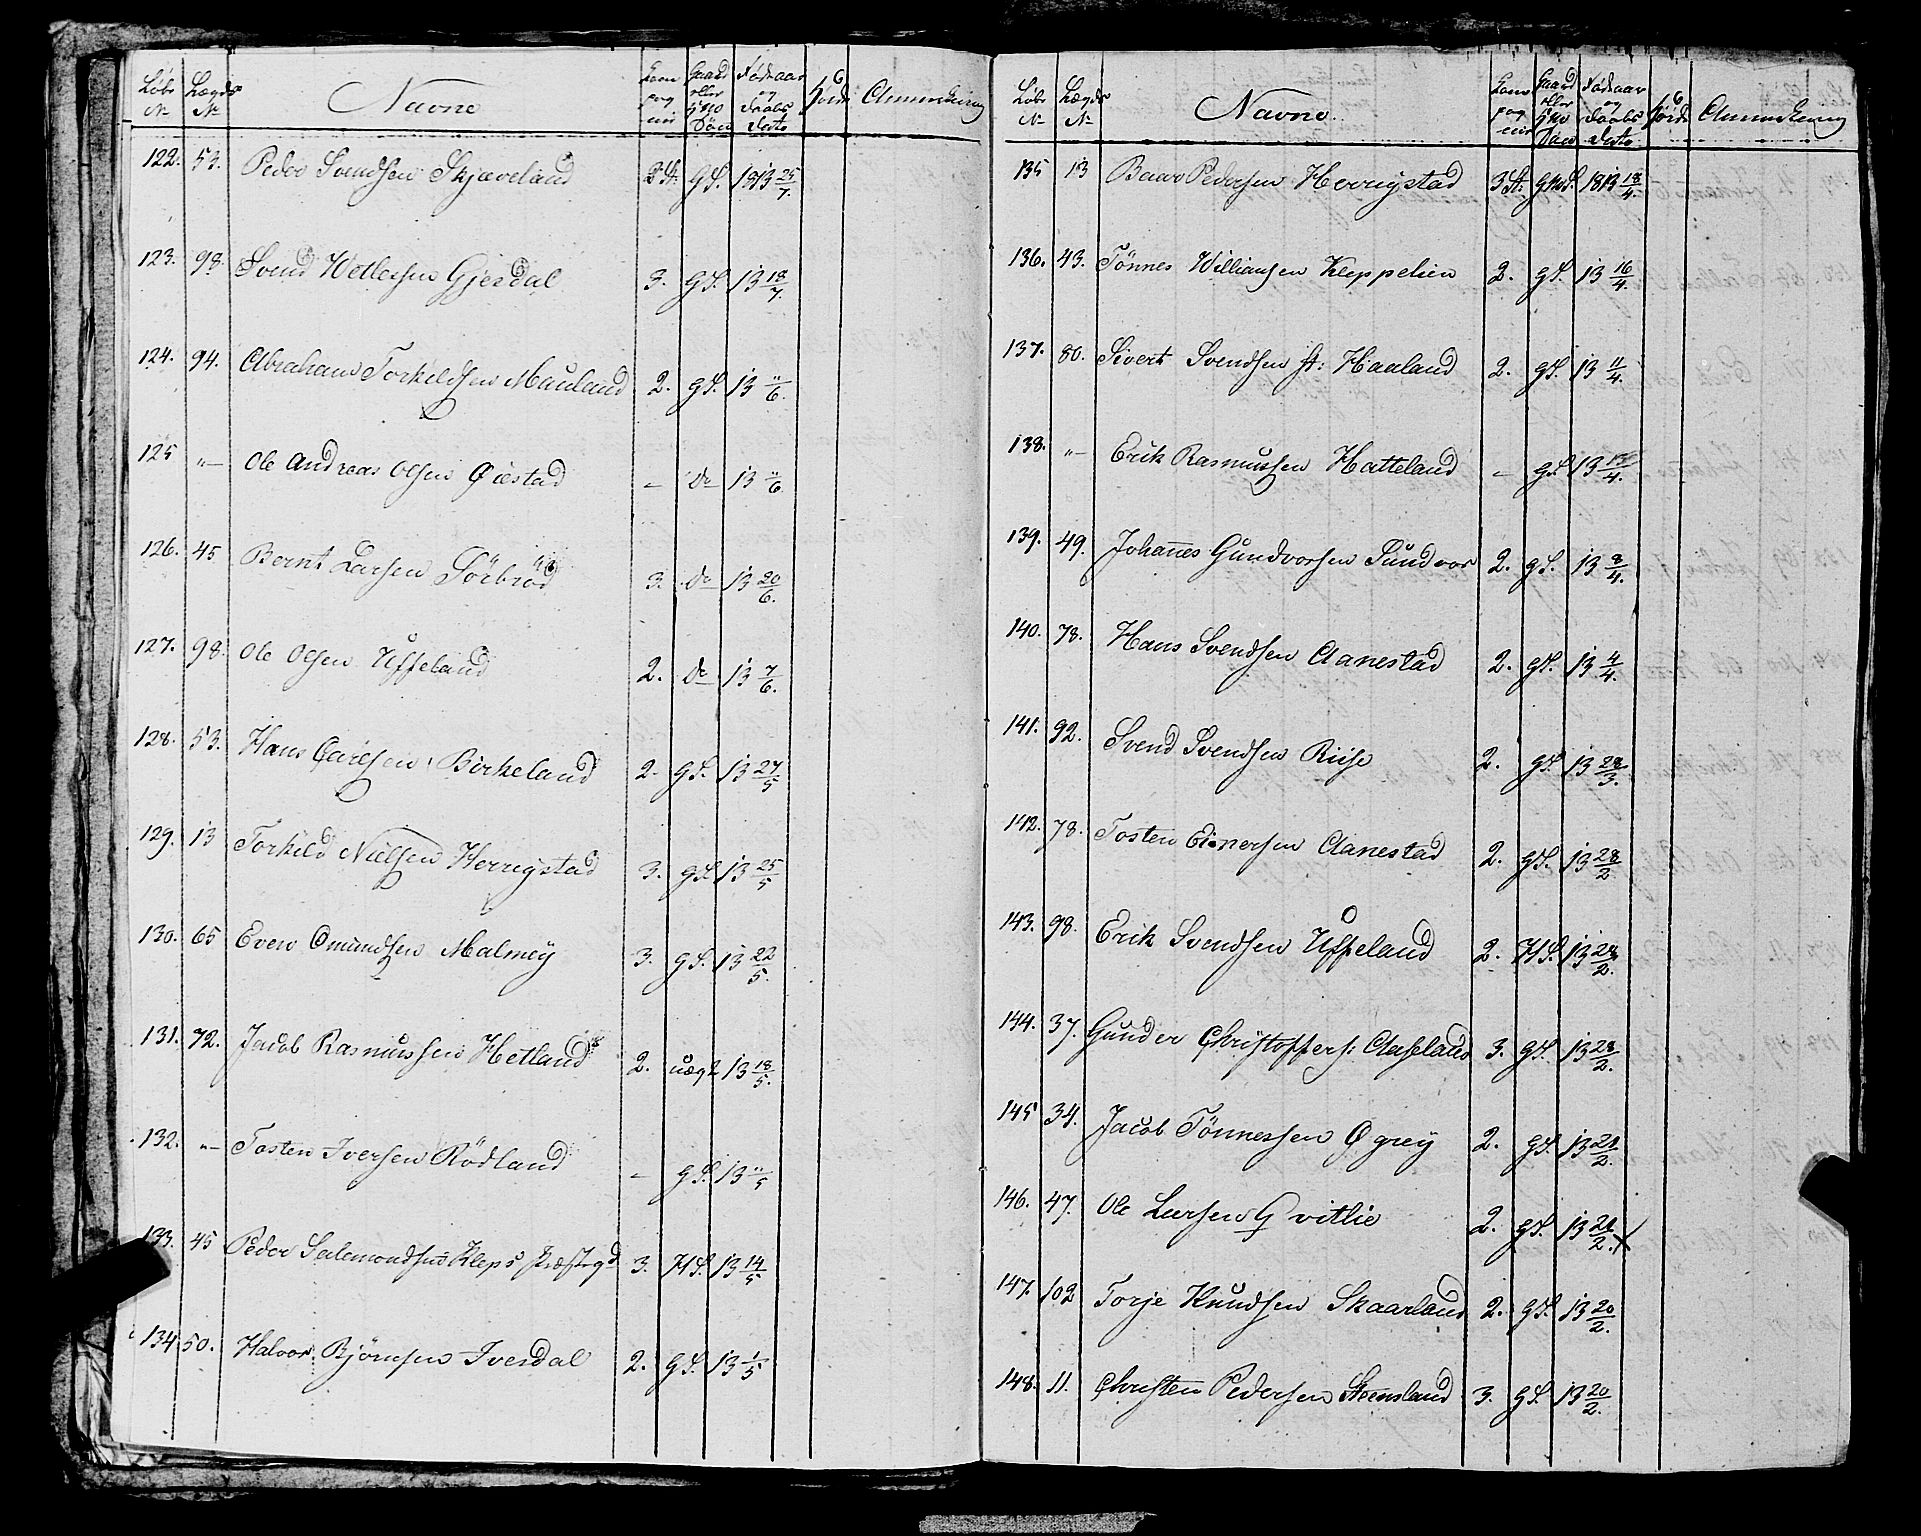 Løbe Nr Lægds Nr Navne Com pag nie Gaard eller Hmd Søn Fødeaar og Daabs Datо høide Anmerkning
122. 53. Peder Svendsen Skjæveland 3 St: GS. 1813 25/7.
123. 98. Svend Wetlessen Gjesdal 3. GS. 13 18/7.
124. 94. Abraham Torkildsen Mauland 2. GS. 13 "/6.
125 "— Ole Andreas Olsen Øiestad – do 13 "/6.
126. 45 Bernt Larsen Sørbrød 3. do 13 20/6.
127. 98. Ole Olsen Uffeland 2. do 13 7/6.
128. 53. Hans Carlsen Birkeland 2. GS. 13 27/5
129. 13 Torkild Nielsen Herrigstad 3. GS. 13 25/5
130. 65 Even Omundsen Malmey 3. GS. 13 22/5.
131. 72. Jacob Rasmussen Hetland 2. uægt 13 18/5.
132. "— Tosten Iversen Rødland – GS. 13 "/5
133. 45 Peder Salemondsen Kleps Præstegd 3. HS. 13 14/5
134 50. Halvor Bjørnsen Ivesdal 2. GS. 13 1/5.
Løbe Nr Lægds Nr Navne. Com pag nie Gaard eller Hmd Søn Fødeaar og Daabs Dato høide Anmerkning
135 13 Baar Pedersen Herrigstad 3 St: GmS. 1813 18/4.
136. 43. Tönnes Williamsen Kleppelien 2. GS. 13 16/4.
137. 80. Sivert Svendsen st: Haaland 2. GS. 13 11/4.
138. "— Erik Rasmussen Hatteland – GS. 13 /4.
139. 49. Johannes Gundvorsen Sundvor 2. GS. 13 8/4.
140. 78. Hans Svendsen Aanestad 2. GS. 13 4/4.
141. 92. Svend Svendsen Riise 2. GS. 13 28/3.
142. 78. Tosten Einersen Aanestad 2. GS. 13 28/2
143. 98. Erik Svendsen Uffeland 2. HS. 13 28/2.
144. 37. Gunder Christoffers: Aaseland 3. GS. 13 28/2.
145 34. Jacob Tönnessen Øgrey 2. GS. 13 21/2.
146. 47. Ole Larsen Qvitlie 2. GS. 13 21/2. x
147. 102 Torje Knudsen Skaarland 2. GS. 13 20/2.
148. 11. Christen Pedersen Steensland 3. GS. 13 20/2.